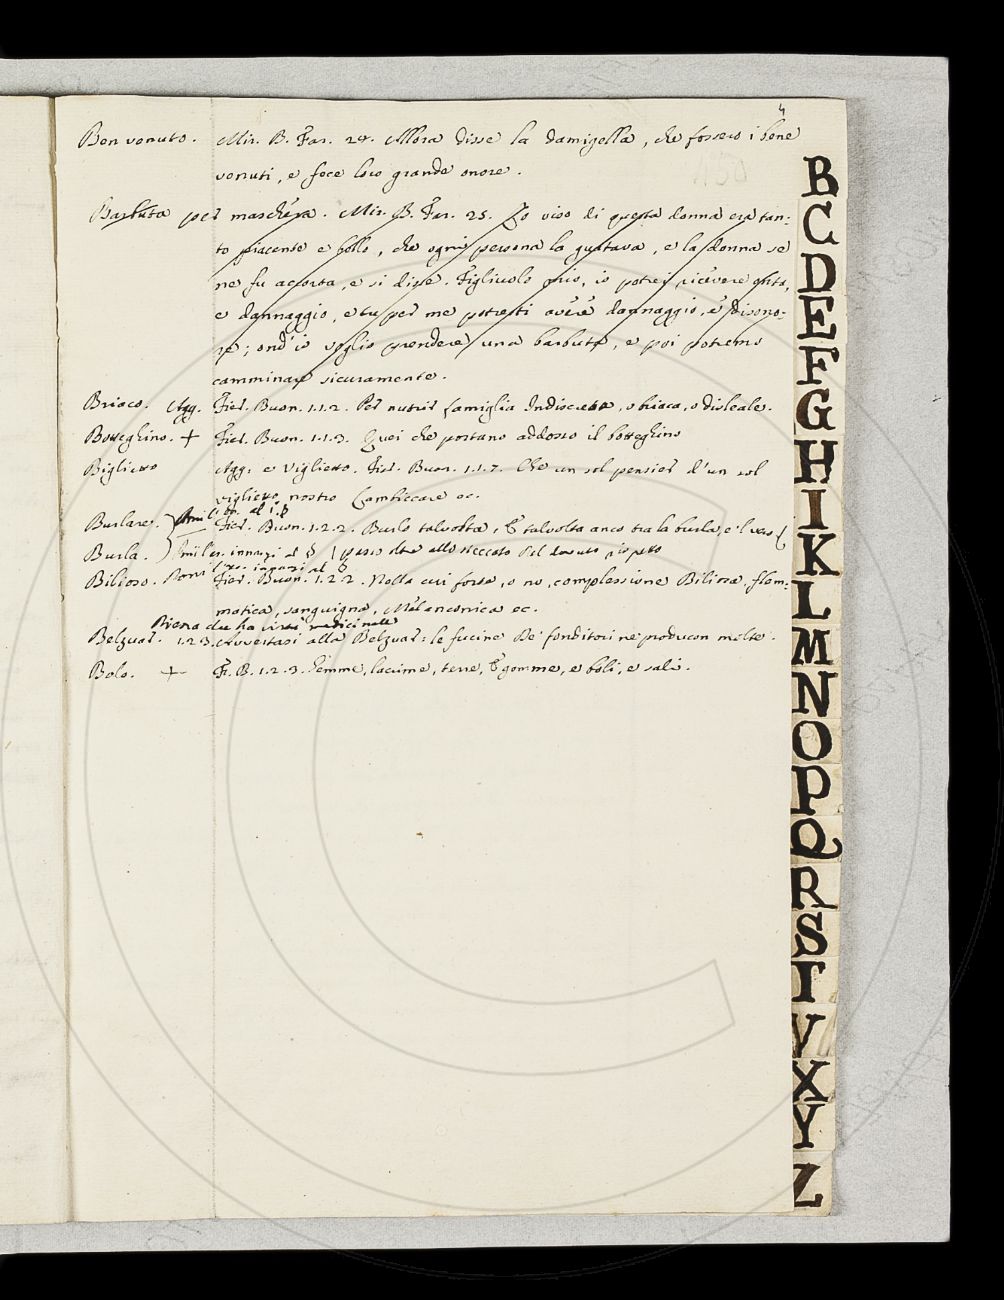 4
Ben venuto. Mir. B. Far. 24. Allora disse la damigella, che fossero i bene
venuti, e fece loro grande onore.
Barbuta per maschera. Mir. B. Far. 25. Lo viso di questa donna era tan-
to piacente e bello, che ogni persona la guatava, e la donna se
ne fu accorta, e si disse. Figliuolo mio, io potrei ricevere onta,
e dannaggio, e tu per me potresti avere dannaggio, e disono-
re; ond' io voglio prendere una barbuta, e poi potremo
camminare sicuramente.
Briaco. Agg. Fier. Buon. 1.1.2. Per nutrir famiglia Indiscreta, o briaca, o disleale.
Botteghino. + Fier. Buon. 1.1.3. Quei che portano addosso il botteghino
Biglietto Agg: e Viglietto. Fier. Buon. 1.1.7. Che un sol pensier d'un sol
viglietto nostro Lambiccare ec.
Burlare. Fier. Buon. 1.2.2. Burlo talvolta, E talvolta anco tra la burla, e 'l vero
Burla. innanzi al § passo oltre allo steccato Del dovuto rispetto
Bilioso. innanzi al §
Fier. Buon. 1.2.2. Nella cui forse, o no, complessione Biliosa, flem-
matica, sanguigna, Melanconica ec.
Pietra che ha virtù medicinale
Belzuar. 1.2.3. Avvertasi alla Belzuar: le fucine De' fonditori ne producon molte.
Bolo. + F. B. 1.2.3. Gemme, lacrime, terre, E gomme, e boli, e sali.
B
C
D
E
F
G
H
I
K
L
M
N
O
P
Q
R
S
T
V
X
Y
Z